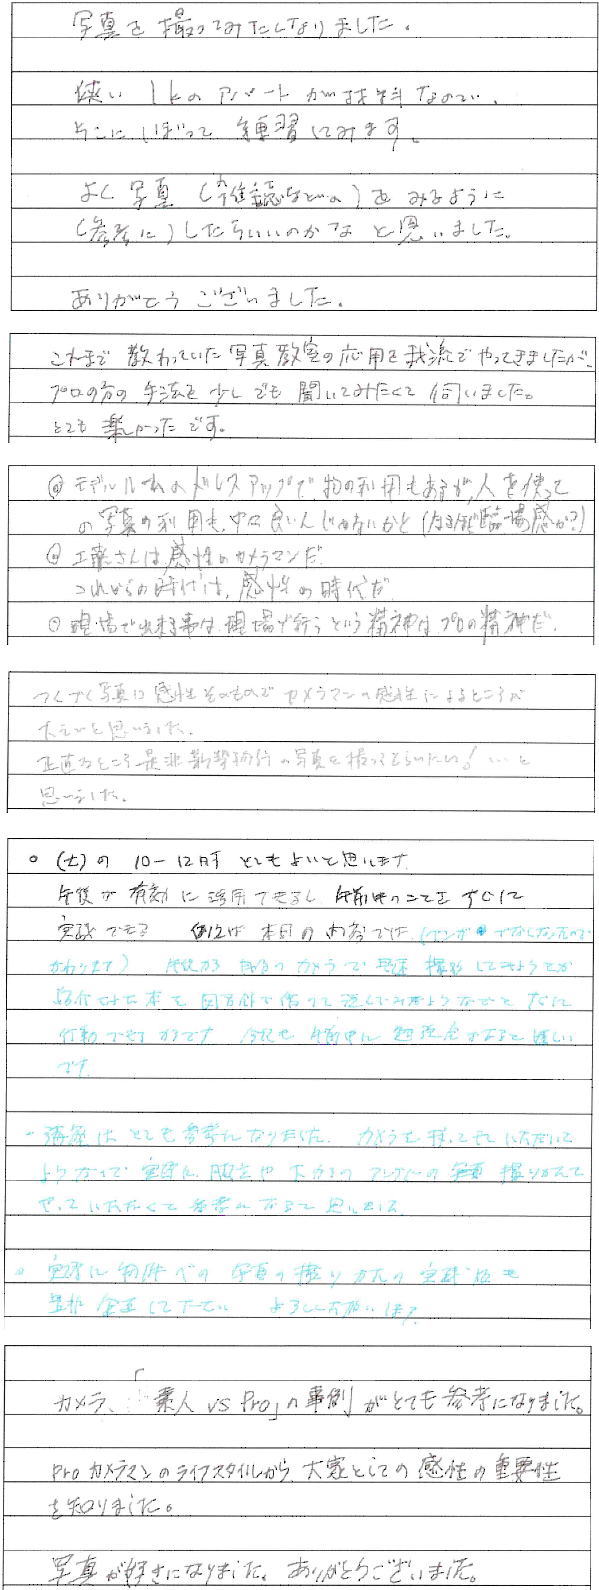 写真を撮ってみたくなりました。
狭い 1Kの アパートが材料なので、
そこにしぼって 練習してみます。
よく写真(雑誌などの)を みるように
(参考に)したらいいのかなと思いました。
ありがとうございました。
これまで 教わっていた写真教室の応用を我流でやってきましたが、
プロの方の手法を少しでも聞いてみたくて伺いました。
とても楽しかったです。
◎ モデルルームのドレスアップで、物の利用もあるが、人を使って
の写真の利用も、中々良いんじゃないかと(なるほど臨場感か?)
◎ 工藤さんは、感性のカメラマンだ。
これからの時代は、感性の時代だ。
◎ 現場で出来る事は、現場で行うという精神は、プロの精神だ。
つくづく写真は感性そのもので カメラマンの感性によるところが
大きいと思いました。
正直なところ是非 の写真を撮ってもらいたい! …と
思いました。
○ (土)の 10-12時 とてもよいと思います
午後が有効に活用できるし 午前中のことを すぐに
実践できる 例えば 本日の内容では(ペンが でなくなったので
かわります) 午後から 自分のカメラで 撮影してみようとか
紹介された本を図書館で借りて読んでみようなどと すぐに
行動できるからです 今後も 午前中に 勉強会があると嬉しい
です。
・ 講義は とても参考になりました。 カメラを 持って いただいて
実際に 脚立や下からの アングルの 撮りかたて
やっていただくと 参考になると思います
○ 実際に物件での 写真の撮りかたの 実践 も
是非 企画して下さい よろしくお願いします
カメラ、「素人 vs Pro」の事例がとても参考になりました。
Pro カメラマンのライフスタイルから 大家としての感性の重要性
を知りました。
写真が好きになりました。ありがとうございました。